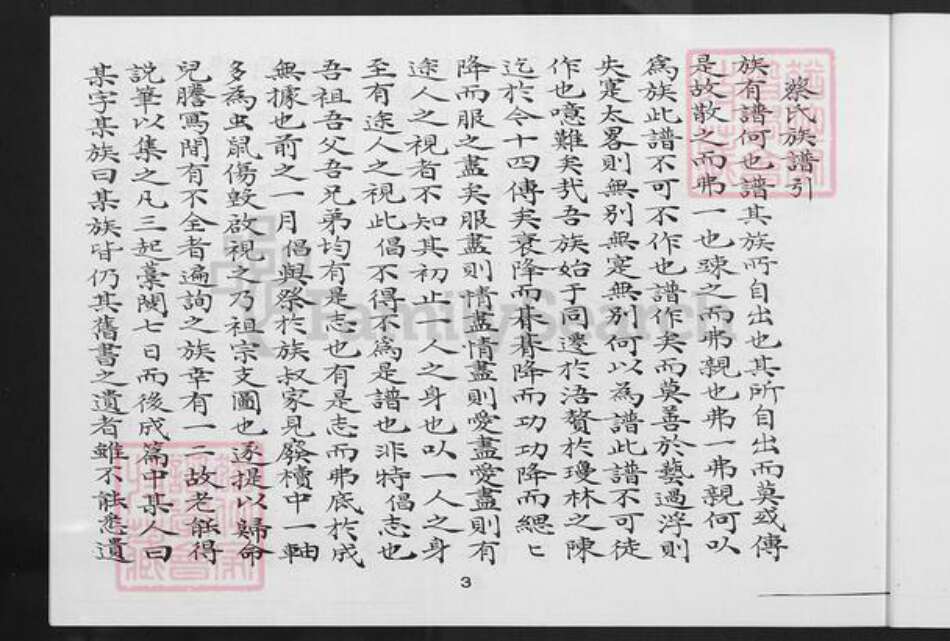 蔡氏族譜引
族有譜何也譜其族所自出也其所自出而莫或傳
是故散之而弗一也踈之而弗親也弗一弗親何以
為族此譜不可不作也譜作矣而莫善於藝過浮則
失寔太畧則無別無寔無別何以為譜此譜不可徒
作也噫難矣哉吾族始于同遷於浯贅於瓊林之陳
迄於今十四傳矣衰降而朞朞降而功功降而緦緦
降而服之盡矣服盡則情盡情盡則愛盡愛盡則有
途人之視者不知其初止一人之身也以一人之身
至有途人之視此倡不得不為是譜也非特倡志也
吾祖吾父吾兄弟均有是志也有是志而弗底於成
無據也前之一月倡與祭於族叔家見廢櫝中一軸
多為虫鼠傷蝕啟視之乃祖宗支圖也遂提以歸命
兒謄寫間有不全者遍詢之族幸有一二故老能得
說筆以集之凡三起藁閱七日而後成篇中某人曰
某字某族曰某族皆仍其舊書之遺者雖不能悉遺
3
FamilySearch